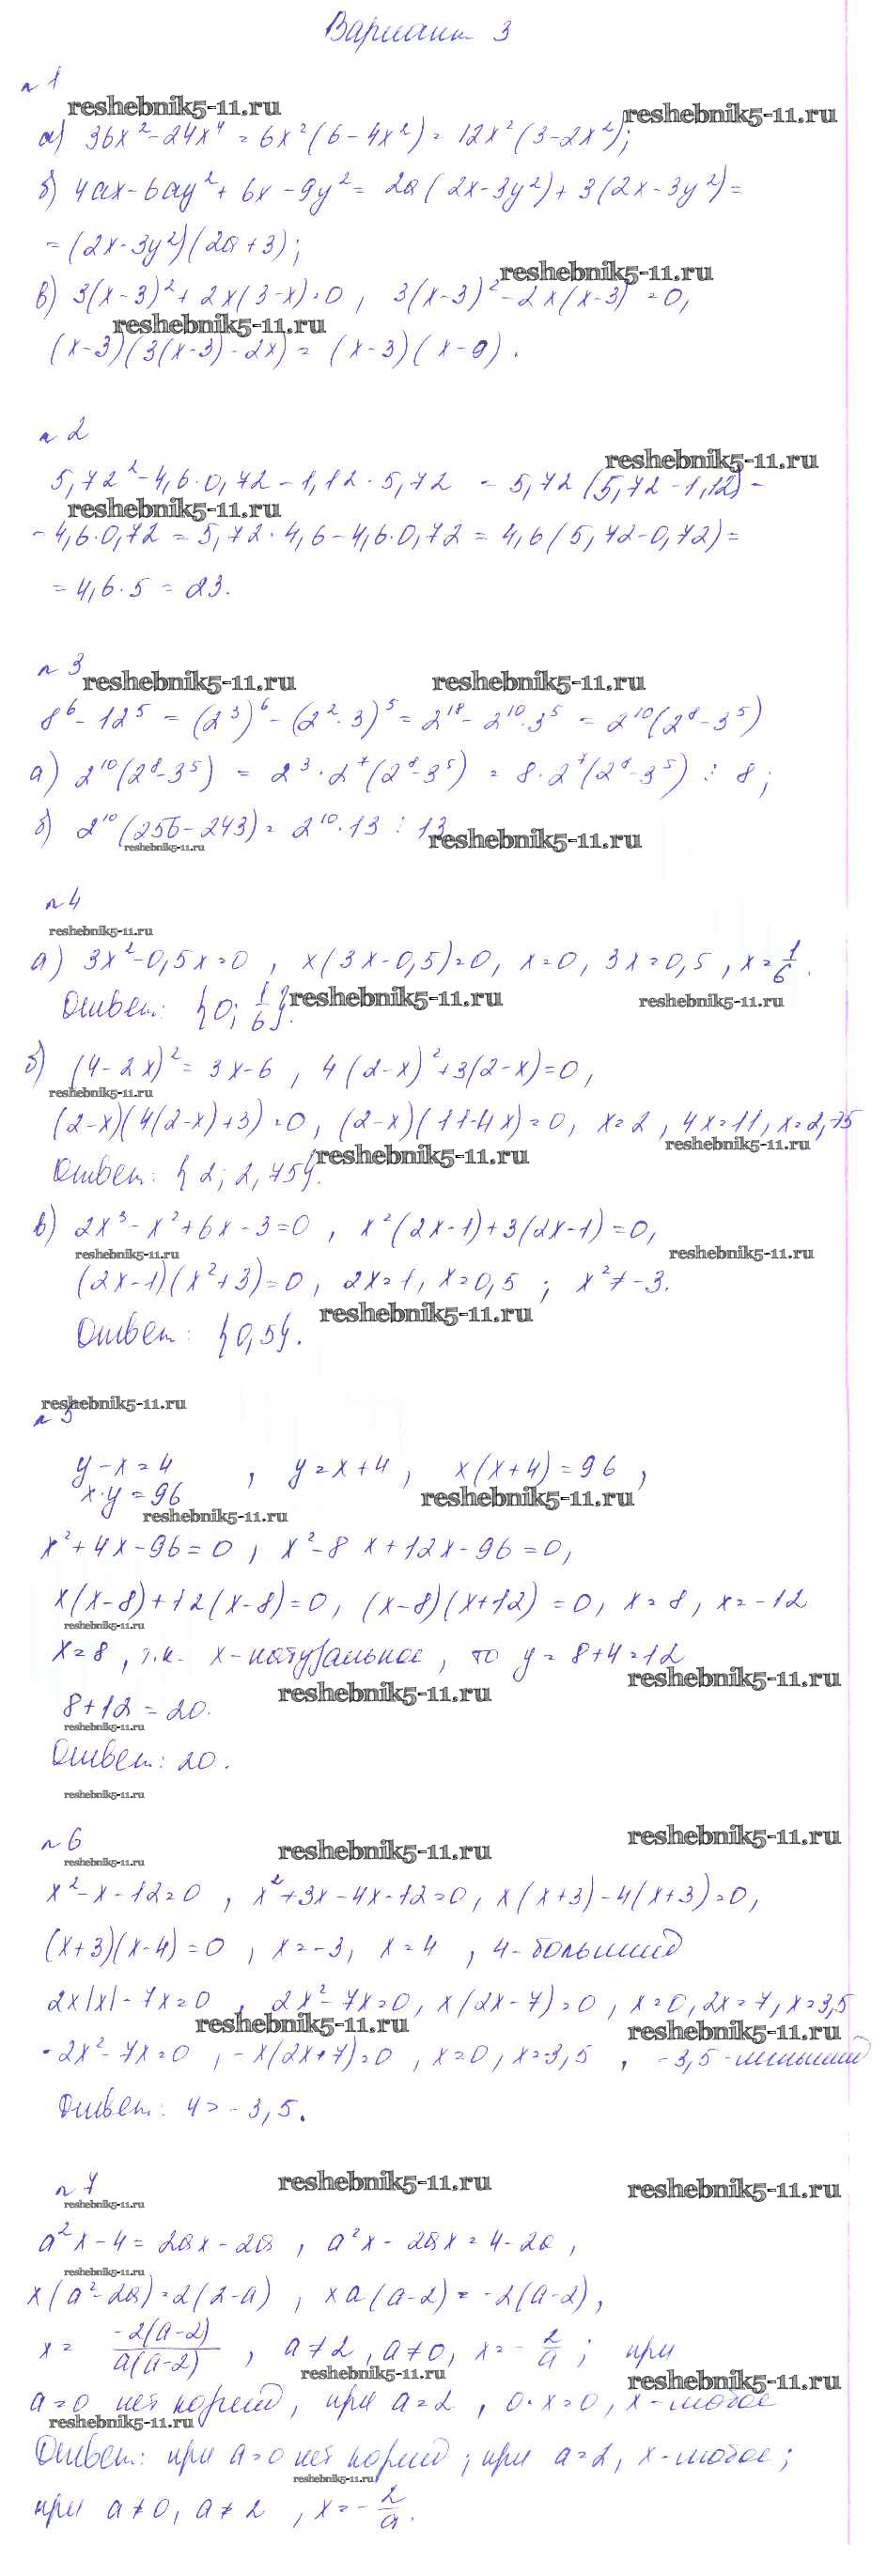 Вариант 3
н 1
reshebnik5-11.ru
reshebnik5-11.ru
а) 36x² - 24x⁴ = 6x²(6 - 4x²) = 12x²(3 - 2x²);
б) 4ax - 6ay² + 6x - 9y² = 2a(2x - 3y²) + 3(2x - 3y²) =
= (2x - 3y²)(2a + 3);
reshebnik5-11.ru
в) 3(x - 3)² + 2x(3 - x) = 0, 3(x - 3)² - 2x(x - 3) = 0,
reshebnik5-11.ru
(x - 3)(3(x - 3) - 2x) = (x - 3)(x - 9).
н 2
reshebnik5-11.ru
5,72² - 4,6·0,72 - 1,12·5,72 = 5,72(5,72 - 1,12) -
reshebnik5-11.ru
- 4,6·0,72 = 5,72·4,6 - 4,6·0,72 = 4,6(5,72 - 0,72) =
= 4,6·5 = 23.
н 3
reshebnik5-11.ru reshebnik5-11.ru
8⁶ - 12⁵ = (2³)⁶ - (2²·3)⁵ = 2¹⁸ - 2¹⁰·3⁵ = 2¹⁰(2⁸ - 3⁵)
а) 2¹⁰(2⁸ - 3⁵) = 2³·2⁷(2⁸ - 3⁵) = 8·2⁷(2⁸ - 3⁵) ⋮ 8;
б) 2¹⁰(256 - 243) = 2¹⁰·13 ⋮ 13
reshebnik5-11.ru
reshebnik5-11.ru
н 4
reshebnik5-11.ru
а) 3x² - 0,5x = 0, x(3x - 0,5) = 0, x = 0, 3x = 0,5, x = 1/6.
Ответ: {0; 1/6}.
reshebnik5-11.ru
reshebnik5-11.ru
б) (4 - 2x)² = 3x - 6, 4(2 - x)² + 3(2 - x) = 0,
reshebnik5-11.ru
(2 - x)(4(2 - x) + 3) = 0, (2 - x)(11 - 4x) = 0, x = 2, 4x = 11, x = 2,75
reshebnik5-11.ru
Ответ: {2; 2,75}.
reshebnik5-11.ru
в) 2x³ - x² + 6x - 3 = 0, x²(2x - 1) + 3(2x - 1) = 0,
reshebnik5-11.ru
reshebnik5-11.ru
(2x - 1)(x² + 3) = 0, 2x = 1, x = 0,5; x² ≠ -3.
reshebnik5-11.ru
Ответ: {0,5}.
reshebnik5-11.ru
н 5
y - x = 4, y = x + 4, x(x + 4) = 96,
x·y = 96
reshebnik5-11.ru
reshebnik5-11.ru
x² + 4x - 96 = 0, x² - 8x + 12x - 96 = 0,
x(x - 8) + 12(x - 8) = 0, (x - 8)(x + 12) = 0, x = 8, x = -12
reshebnik5-11.ru
x = 8, т.к. x - натуральное, то y = 8 + 4 = 12
reshebnik5-11.ru
reshebnik5-11.ru
8 + 12 = 20.
reshebnik5-11.ru
Ответ: 20.
reshebnik5-11.ru
н 6
reshebnik5-11.ru
reshebnik5-11.ru
reshebnik5-11.ru
x² - x - 12 = 0, x² + 3x - 4x - 12 = 0, x(x + 3) - 4(x + 3) = 0,
(x + 3)(x - 4) = 0, x = -3, x = 4, 4 - больший
2x|x| - 7x = 0, 2x² - 7x = 0, x(2x - 7) = 0, x = 0, 2x = 7, x = 3,5
reshebnik5-11.ru
reshebnik5-11.ru
-2x² - 7x = 0, -x(2x + 7) = 0, x = 0, x = -3,5, -3,5 - меньший
Ответ: 4 > -3,5.
н 7
reshebnik5-11.ru
reshebnik5-11.ru
reshebnik5-11.ru
a²x - 4 = 2ax - 2a, a²x - 2ax = 4 - 2a,
reshebnik5-11.ru
x(a² - 2a) = 2(2 - a), xa(a - 2) = -2(a - 2),
x = -2(a - 2)/a(a - 2), a ≠ 2, a ≠ 0, x = -2/a; при
reshebnik5-11.ru
reshebnik5-11.ru
a = 0 нет корней, при a = 2, 0·x = 0, x - любое
reshebnik5-11.ru
Ответ: при a = 0 нет корней; при a = 2, x - любое;
reshebnik5-11.ru
при a ≠ 0, a ≠ 2, x = -2/a.